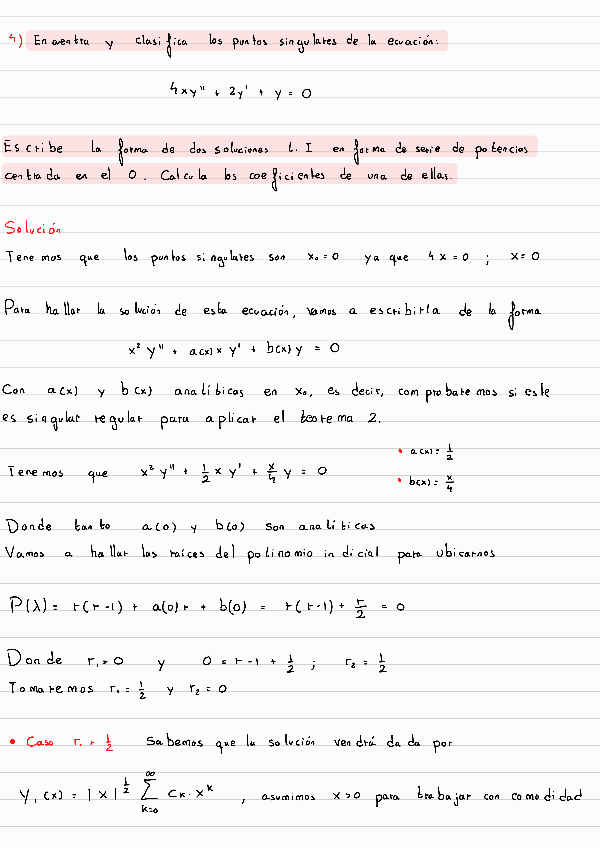 4) Encuentra y clasifica los puntos singulares de la ecuación:
4xy'' + 2y' + y = 0
Escribe la forma de dos soluciones l. I en forma de serie de potencias
centrada en el 0. Calcula los coeficientes de una de ellas.
Solución
Tenemos que los puntos singulares son x₀=0 ya que 4x=0 ; x=0
Para hallar la solución de esta ecuación, vamos a escribirla de la forma
x² y'' + a(x) x y' + b(x) y = 0
Con a(x) y b(x) analíticas en x₀, es decir, comprobaremos si este
es singular regular para aplicar el teorema 2.
Tenemos que x² y'' + 1/2 x y' + x/4 y = 0
• a(x) = 1/2
• b(x) = x/4
Donde tanto a(0) y b(0) son analíticas
Vamos a hallar las raíces del polinomio indicial para ubicarnos
P(λ) = r(r-1) + a(0)r + b(0) = r(r-1) + r/2 = 0
Donde r₁=0 y 0 = r-1 + 1/2 ; r₂ = 1/2
Tomaremos r₁ = 1/2 y r₂ = 0
• Caso r₁ = 1/2 Sabemos que la solución vendrá dada por
y₁(x) = |x|^{1/2} ∑_{k=0}^{∞} Cₖ · x^k , asumimos x>0 para trabajar con comodidad